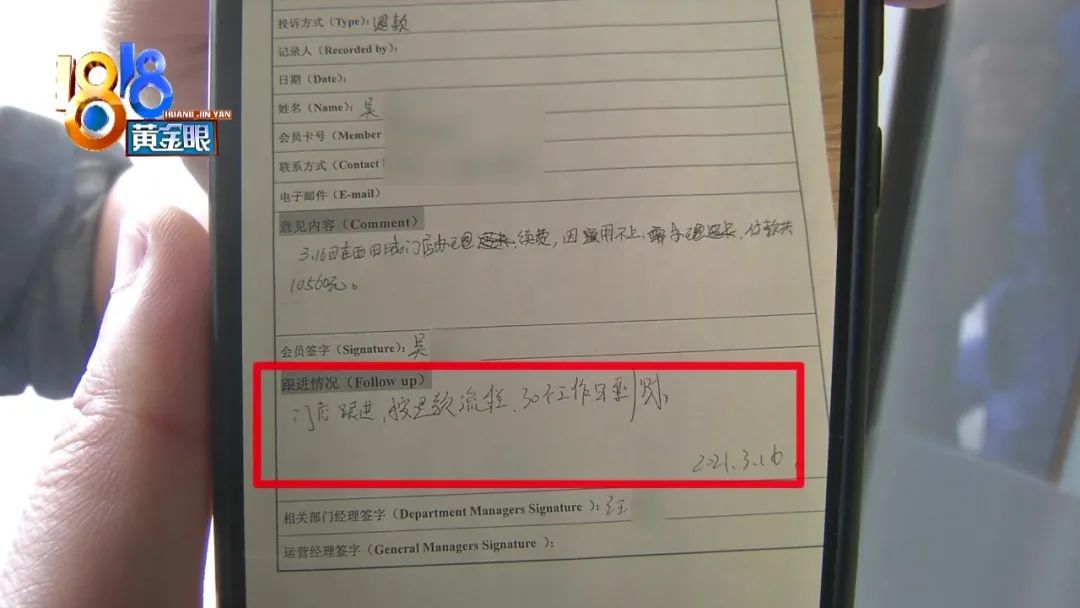 1818
HUANG JIN YAN
黄金眼
投诉方式（Type）：退款
记录人（Recorded by）：
日期（Date）：
姓名（Name）：吴
会员卡号（Member
联系方式（Contact
电子邮件（E-mail）
意见内容（Comment）
3.16日在西田城门店办理续费，因用不上，付款共
10560元。
会员签字（Signature）：吴
跟进情况（Follow up）
门店跟进，按退款流程，30个工作日到账。
2021.3.16
相关部门经理签字（Department Managers Signature ）：汪
运营经理签字（General Managers Signature ）：